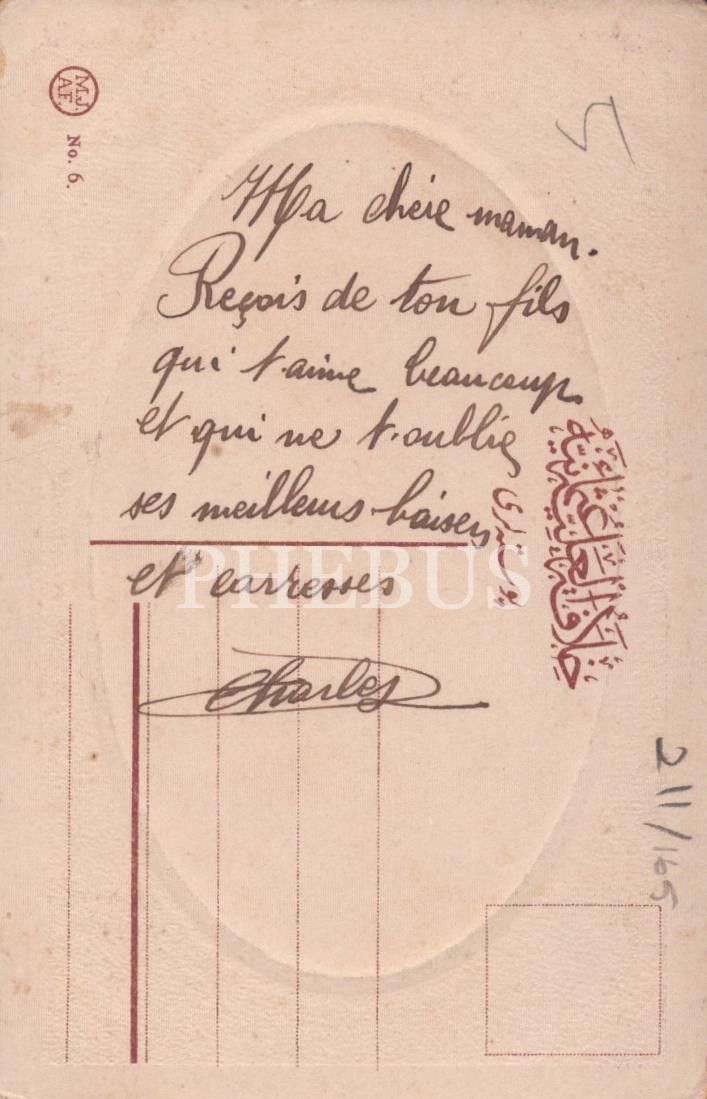 M.J.
AF.
No. 6.
5
Ma chère maman.
Reçois de ton fils
qui t'aime beaucoup
et qui ne t'oublie
ses meilleurs baisers
et carresses
Charles
PHEBUS
211/165